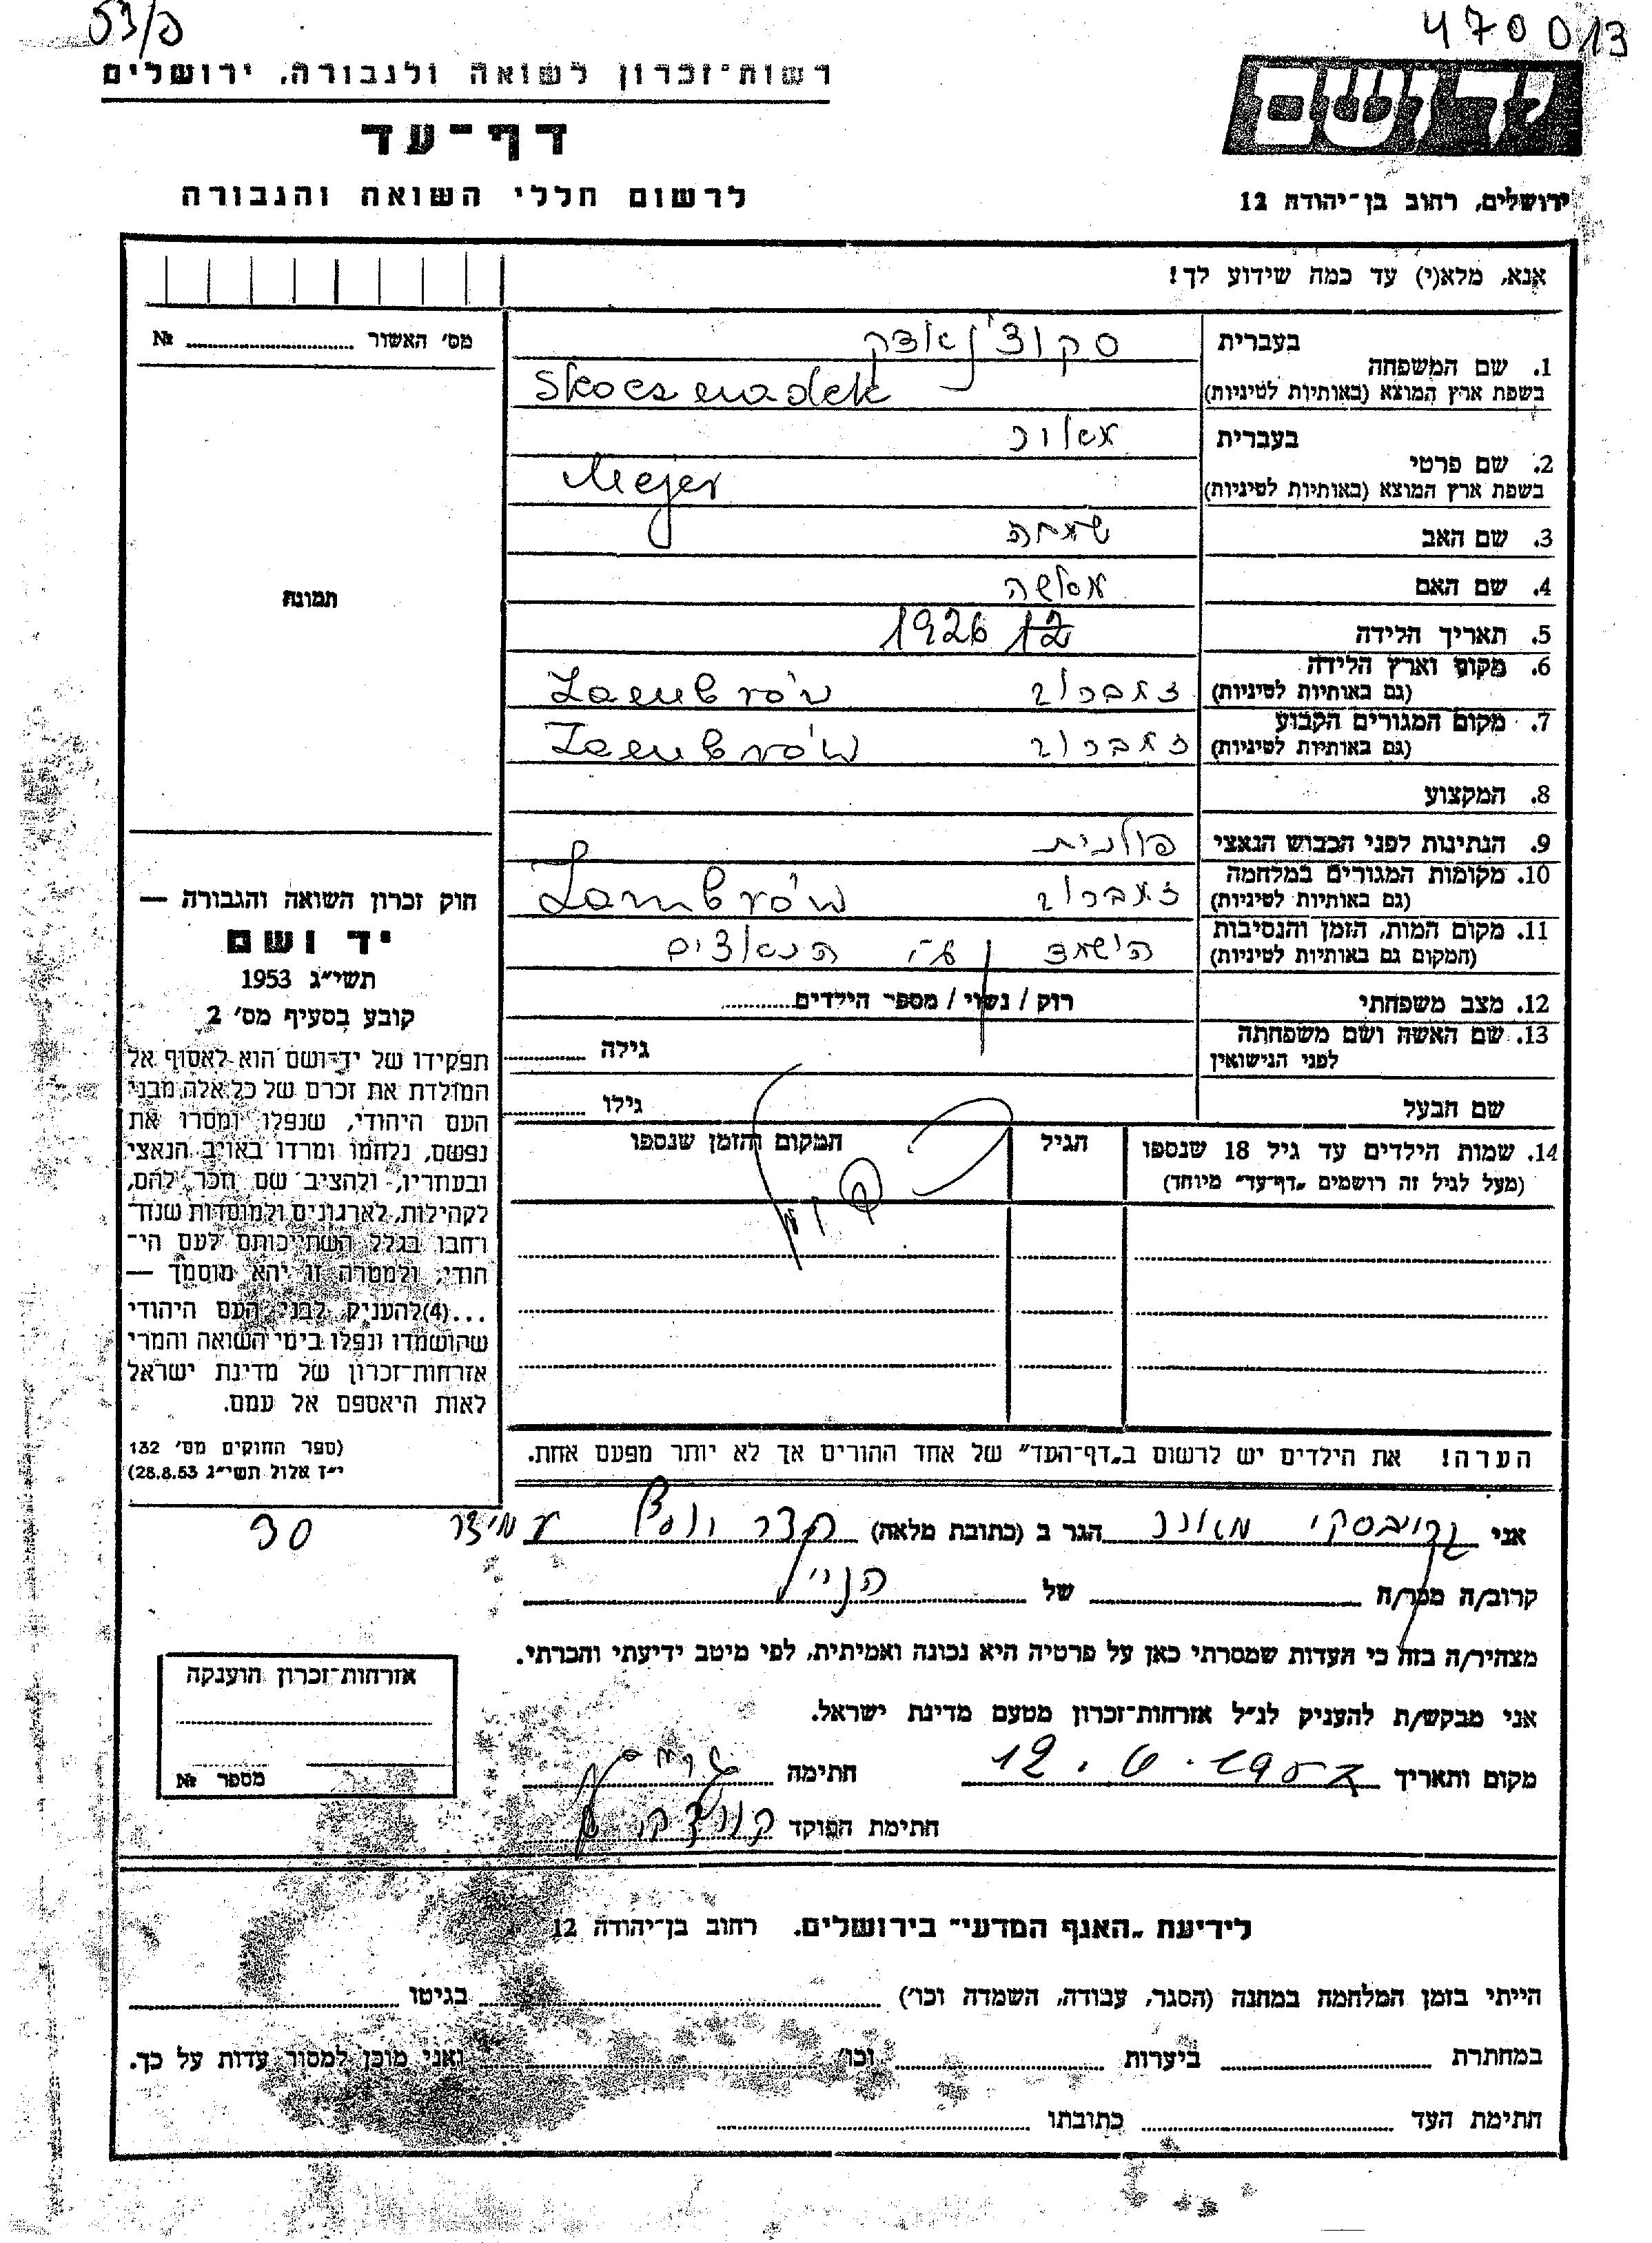 53/פ
470013
רשות-זכרון לשואה ולגבורה, ירושלים
דף-עד
לרשום חללי השואה והגבורה
יד ושם
ירושלים, רחוב בן-יהודה 12
אנא, מלא(י) עד כמה שידוע לך!
מס׳ האשור ........ №
תמונה
1. שם המשפחה
בעברית סקוצ׳נאדק
בשפת ארץ המוצא (באותיות לטיניות) Skocznadek
2. שם פרטי
בעברית מאיר
בשפת ארץ המוצא (באותיות לטיניות) Mejer
3. שם האב שמחה
4. שם האם
5. תאריך הלידה 1926 12
6. מקום וארץ הלידה
(גם באותיות לטיניות) זמברוב Zambrów
7. מקום המגורים הקבוע
(גם באותיות לטיניות) זמברוב Zambrów
8. המקצוע
9. הנתינות לפני הכבוש הנאצי פולנית
10. מקומות המגורים במלחמה
(גם באותיות לטיניות) זמברוב Zambrów
11. מקום המות, הזמן והנסיבות
(המקום גם באותיות לטיניות) הנאצים
12. מצב משפחתי רוק / נשוי / מספר הילדים........
13. שם האשה ושם משפחתה
לפני הנישואין גילה ........
שם הבעל גילו ........
14. שמות הילדים עד גיל 18 שנספו
(מעל לגיל זה רושמים „דף-עד״ מיוחד)
הגיל
המקום והזמן שנספו
הערה! את הילדים יש לרשום ב„דף-העד״ של אחד ההורים אך לא יותר מפעם אחת.
חוק זכרון השואה והגבורה —
יד ושם
תשי״ג 1953
קובע בסעיף מס׳ 2
תפקידו של יד-ושם הוא לאסוף אל
המולדת את זכרם של כל אלה מבני
העם היהודי, שנפלו ומסרו את
נפשם, נלחמו ומרדו באויב הנאצי
ובעוזריו, ולהציב שם וזכר להם,
לקהילות, לארגונים ולמוסדות שנח-
רבו בגלל השתייכותם לעם הי-
הודי, ולמטרה זו יהא מוסמך —
...(4)להעניק לבני העם היהודי
שהושמדו ונפלו בימי השואה והמרי
אזרחות-זכרון של מדינת ישראל
לאות היאספם אל עמם.
(ספר החוקים מס׳ 132
י״ז אלול תשי״ג 28.8.53)
אני הגר ב (כתובת מלאה) עמידר 30
קרוב/ה מכר/ה ........ של הנ״ל
מצהיר/ה בזה כי העדות שמסרתי כאן על פרטיה היא נכונה ואמיתית, לפי מיטב ידיעתי והכרתי.
אני מבקש/ת להעניק לנ״ל אזרחות-זכרון מטעם מדינת ישראל.
מקום ותאריך 12. 6. 1957 חתימה
חתימת הפוקד
אזרחות-זכרון הוענקה
מספר №
לידיעת „האגף המדעי״ בירושלים. רחוב בן-יהודה 12
הייתי בזמן המלחמה במחנה (הסגר, עבודה, השמדה וכו׳) ........ בגיטו ........
במחתרת ........ ביערות ........ וכו׳ ........ ואני מוכן למסור עדות על כך.
חתימת העד ........ כתובתו ........